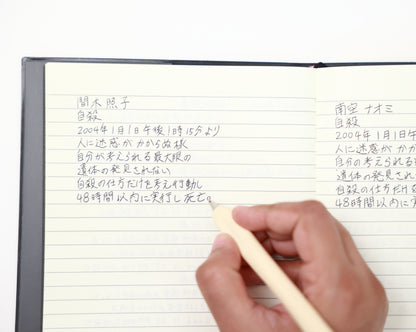 間木 照子
自殺
2004年1月1日午後1時15分より
人に迷惑がかからぬ様
自分が考えられる最大限の
遺体の発見されない
自殺の仕方だけを考え行動し
48時間以内に実行し死亡。
南空 ナオミ
自殺
2004年1月1日午
人に迷惑がかか
自分の考えられ
遺体の発見され
自殺の仕方だけ
48時間以内に実